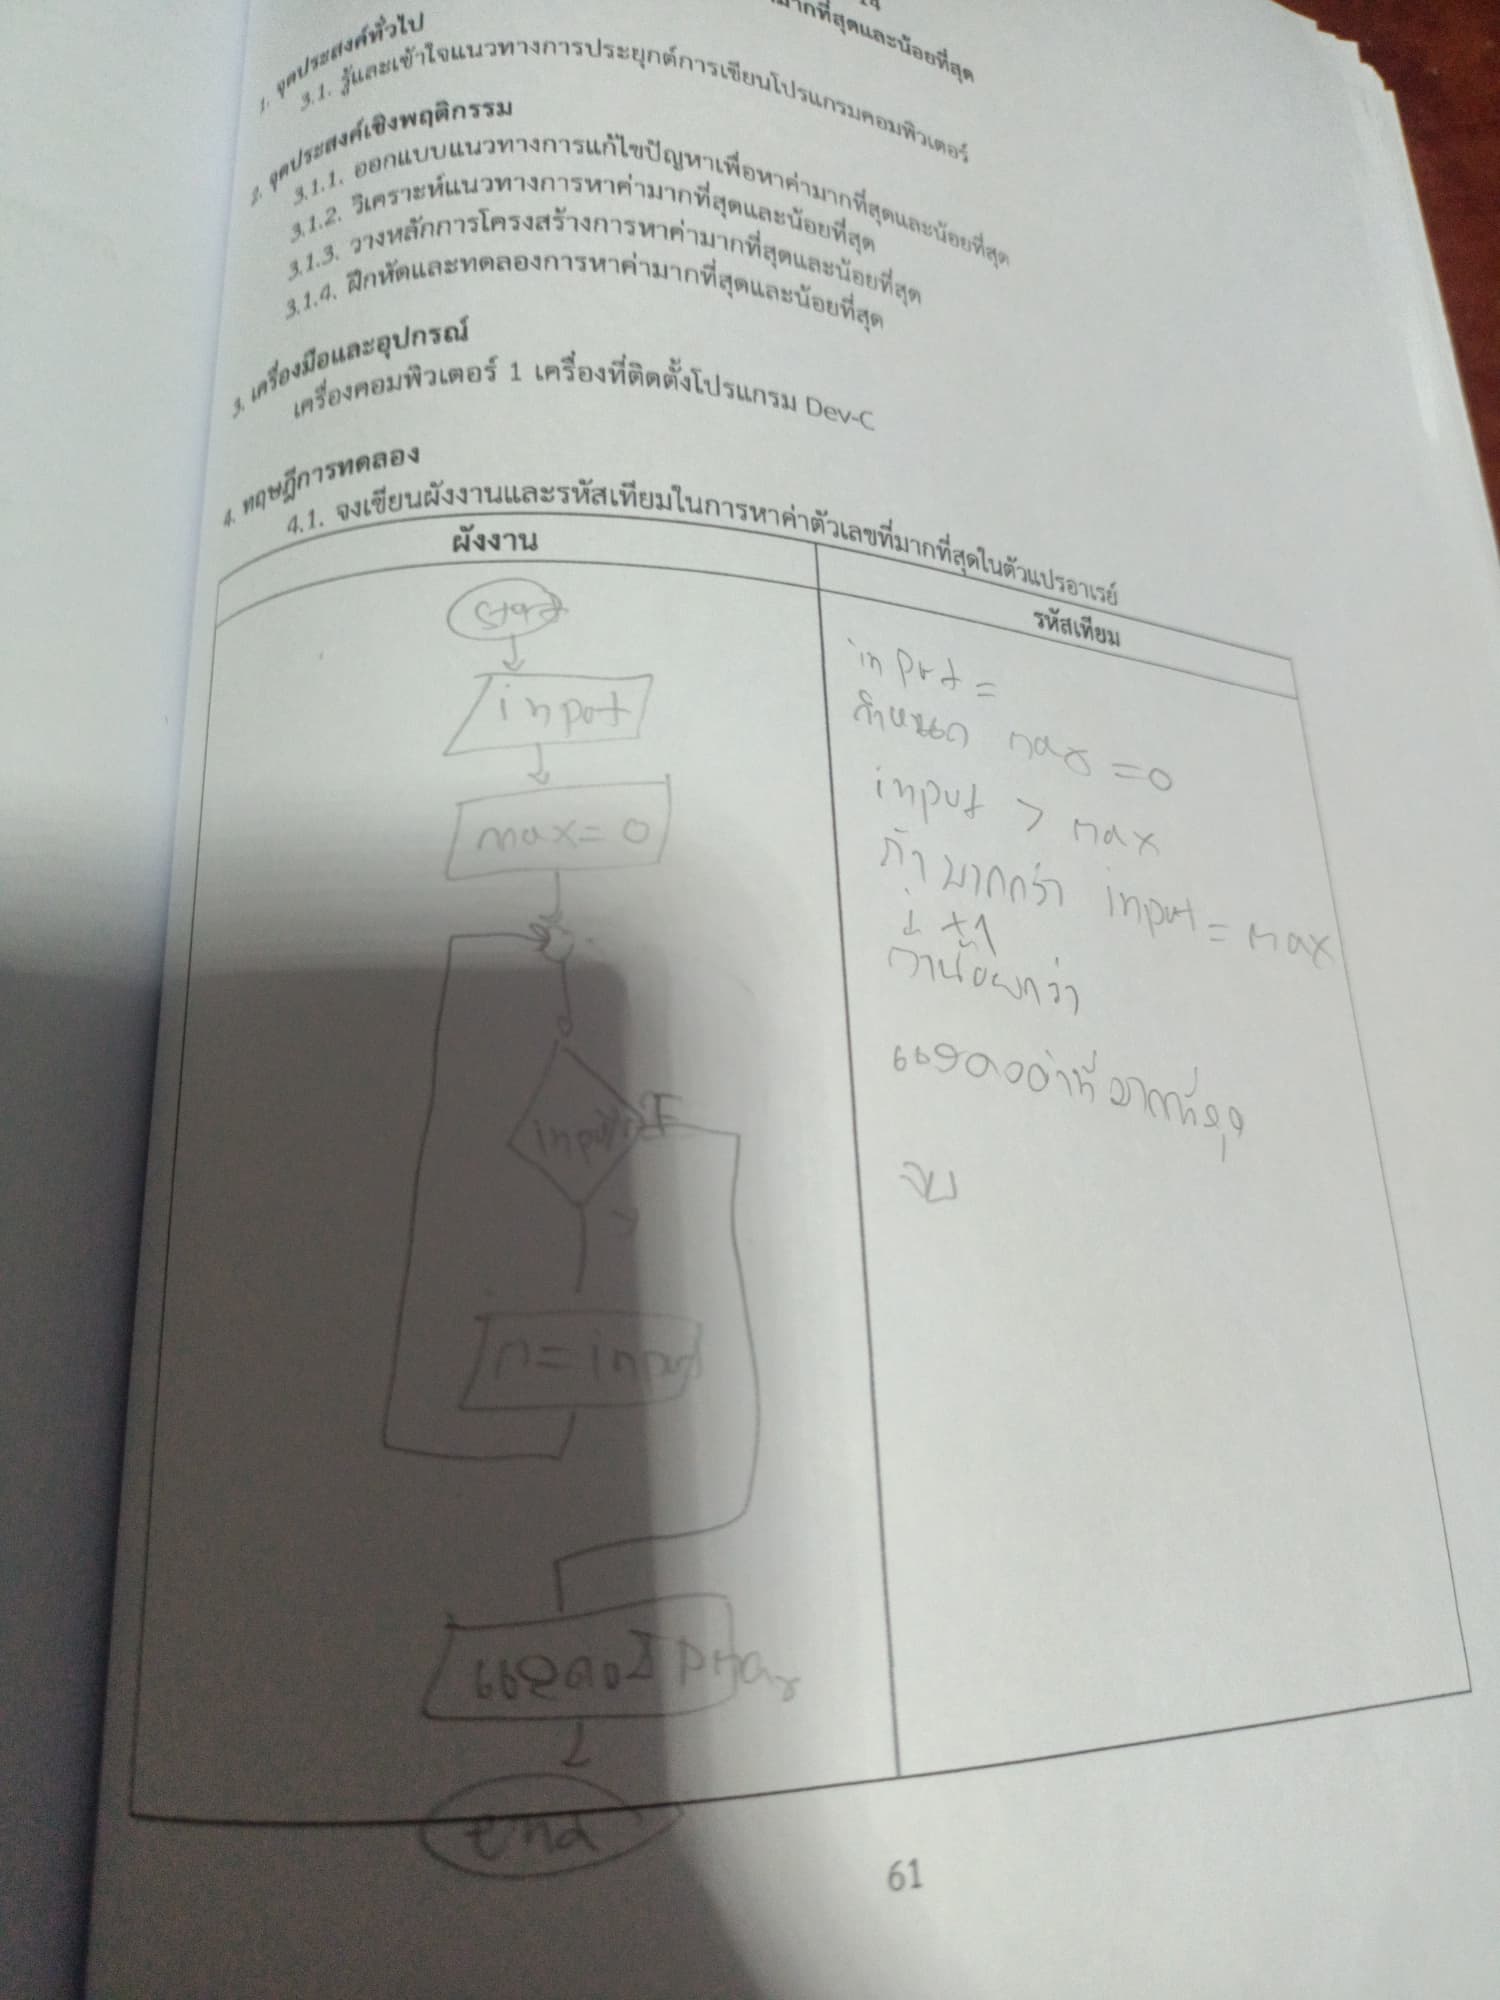 ามากที่สุดและน้อยที่สุด
1. จุดประสงค์ทั่วไป
3.1. รู้และเข้าใจแนวทางการประยุกต์การเขียนโปรแกรมคอมพิวเตอร์
2. จุดประสงค์เชิงพฤติกรรม
3.1.1. ออกแบบแนวทางการแก้ไขปัญหาเพื่อหาค่ามากที่สุดและน้อยที่สุด
3.1.2. วิเคราะห์แนวทางการหาค่ามากที่สุดและน้อยที่สุด
3.1.3. วางหลักการโครงสร้างการหาค่ามากที่สุดและน้อยที่สุด
3.1.4. ฝึกหัดและทดลองการหาค่ามากที่สุดและน้อยที่สุด
3. เครื่องมือและอุปกรณ์
เครื่องคอมพิวเตอร์ 1 เครื่องที่ติดตั้งโปรแกรม Dev-C
4. ทฤษฎีการทดลอง
4.1. จงเขียนผังงานและรหัสเทียมในการหาค่าตัวเลขที่มากที่สุดในตัวแปรอาเรย์
ผังงาน
start
input
max = 0
input
F
n = input
end
รหัสเทียม
input =
กำหนด max = 0
input > max
ถ้ามากกว่า input = max
+1
ถ้าน้อยกว่า
แสดงค่าที่มากที่สุด
จบ
61